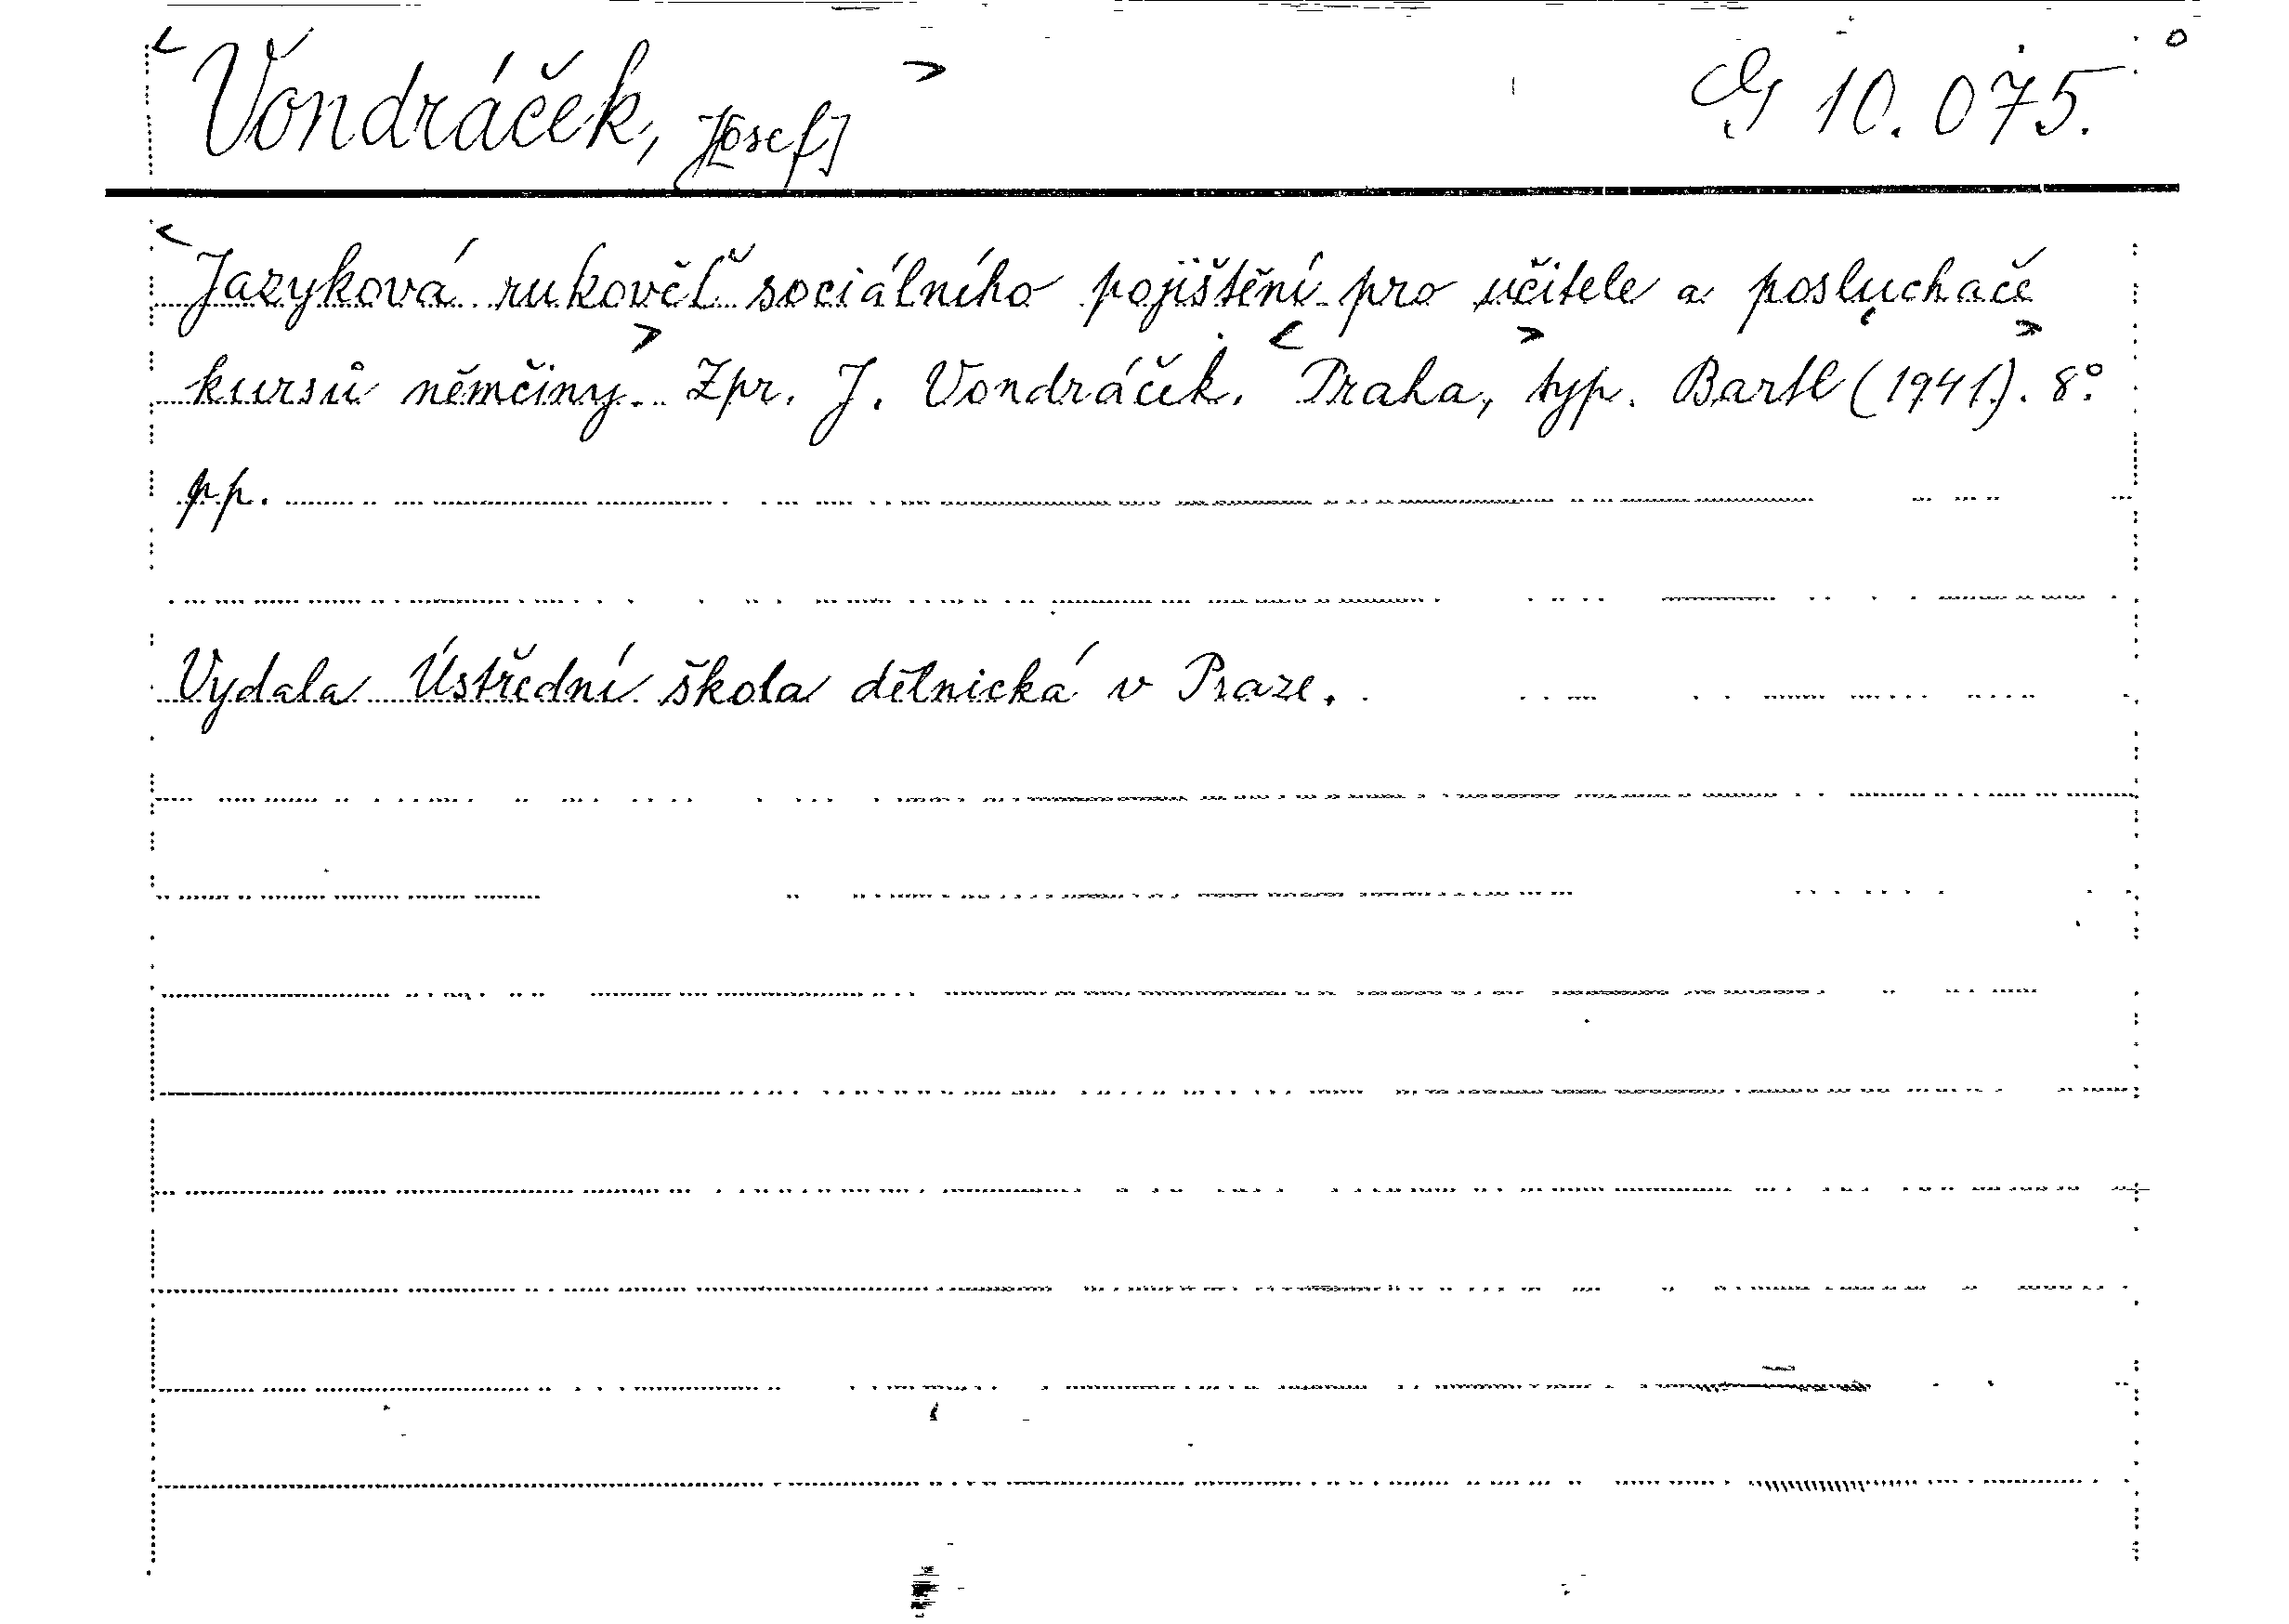 Vondráček, J[osef] G 10.075.
Jazyková rukověť sociálního pojištění pro učitele a posluchače
kursů němčiny. Zpr. J. Vondráček. Praha, typ. Bartl (1941). 8°
pp.
Vydala Ústřední škola dělnická v Praze.